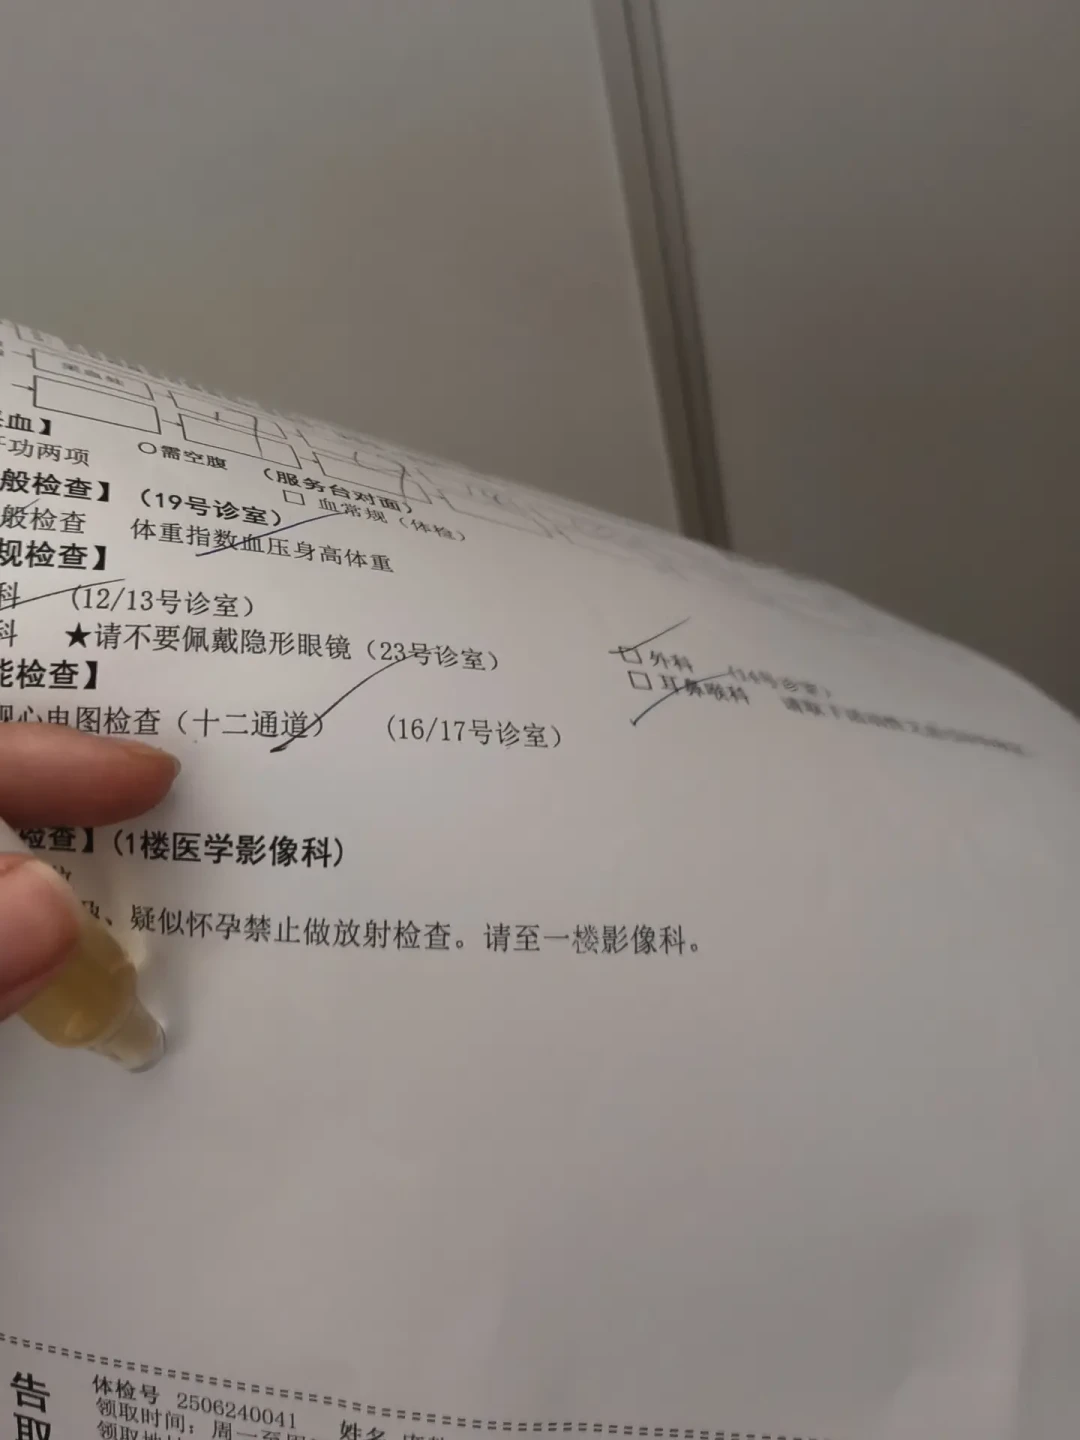 血】
功两项 ○需空腹 (服务台对面)
□ 血常规（体检）
般检查】 (19号诊室)
般检查 体重指数血压身高体重
规检查】
科 (12/13号诊室)
科 ★请不要佩戴隐形眼镜（23号诊室）
□ 外科 (14号诊室)
□ 耳鼻喉科
能检查】
心电图检查（十二通道） (16/17号诊室)
检查】(1楼医学影像科)
孕、疑似怀孕禁止做放射检查。请至一楼影像科。
告
取
体检号 2506240041 姓名
领取时间：周一至